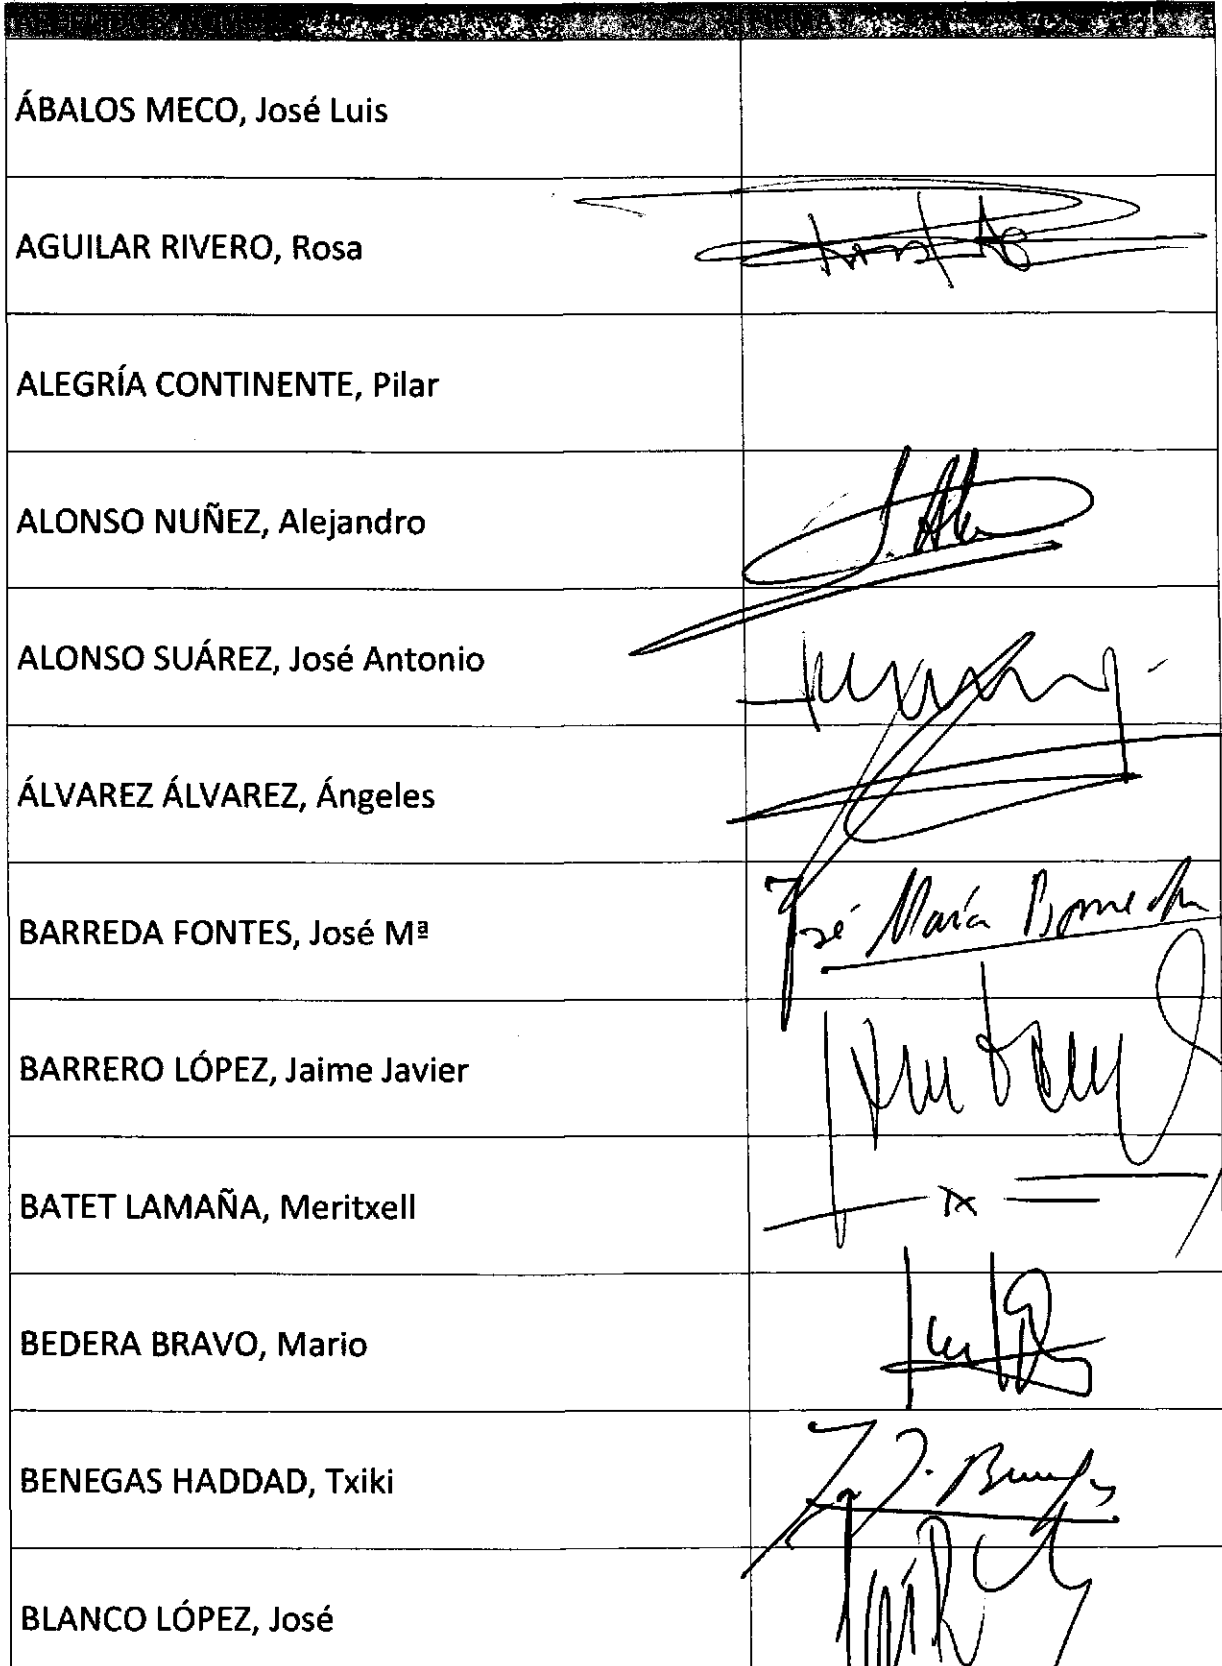 APELLIDOS Y NOMBRE FIRMA
ÁBALOS MECO, José Luis
AGUILAR RIVERO, Rosa
ALEGRÍA CONTINENTE, Pilar
ALONSO NUÑEZ, Alejandro
ALONSO SUÁREZ, José Antonio
ÁLVAREZ ÁLVAREZ, Ángeles
BARREDA FONTES, José Mª
José María Barreda
BARRERO LÓPEZ, Jaime Javier
BATET LAMAÑA, Meritxell
BEDERA BRAVO, Mario
BENEGAS HADDAD, Txiki
BLANCO LÓPEZ, José